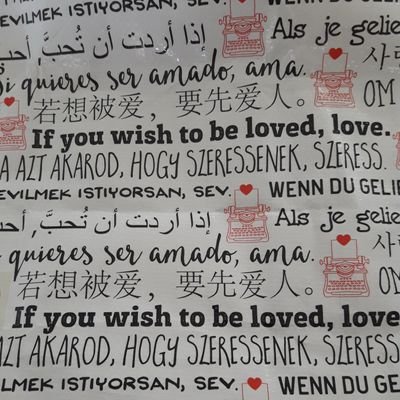 EVILMEK ISTIYORSAN, SEV. WENN DU GELIE
إذا أردت أن تُحبَّ, أحب Als je gelie
Si quieres ser amado, ama. 사ㄹ
若想被爱，要先爱人。 OM
If you wish to be loved, love.
A AZT AKAROD, HOGY SZERESSENEK, SZERESS.
EVILMEK ISTIYORSAN, SEV. WENN DU GELIE
إذا أردت أن تُحبَّ, أحب Als je gelie
quieres ser amado, ama. 사
若想被爱，要先爱人。 OM
If you wish to be loved, love
AZT AKAROD, HOGY SZERESSENEK, SZERESS
LMEK ISTIYORSAN, SEV. WENN DU GELIEB